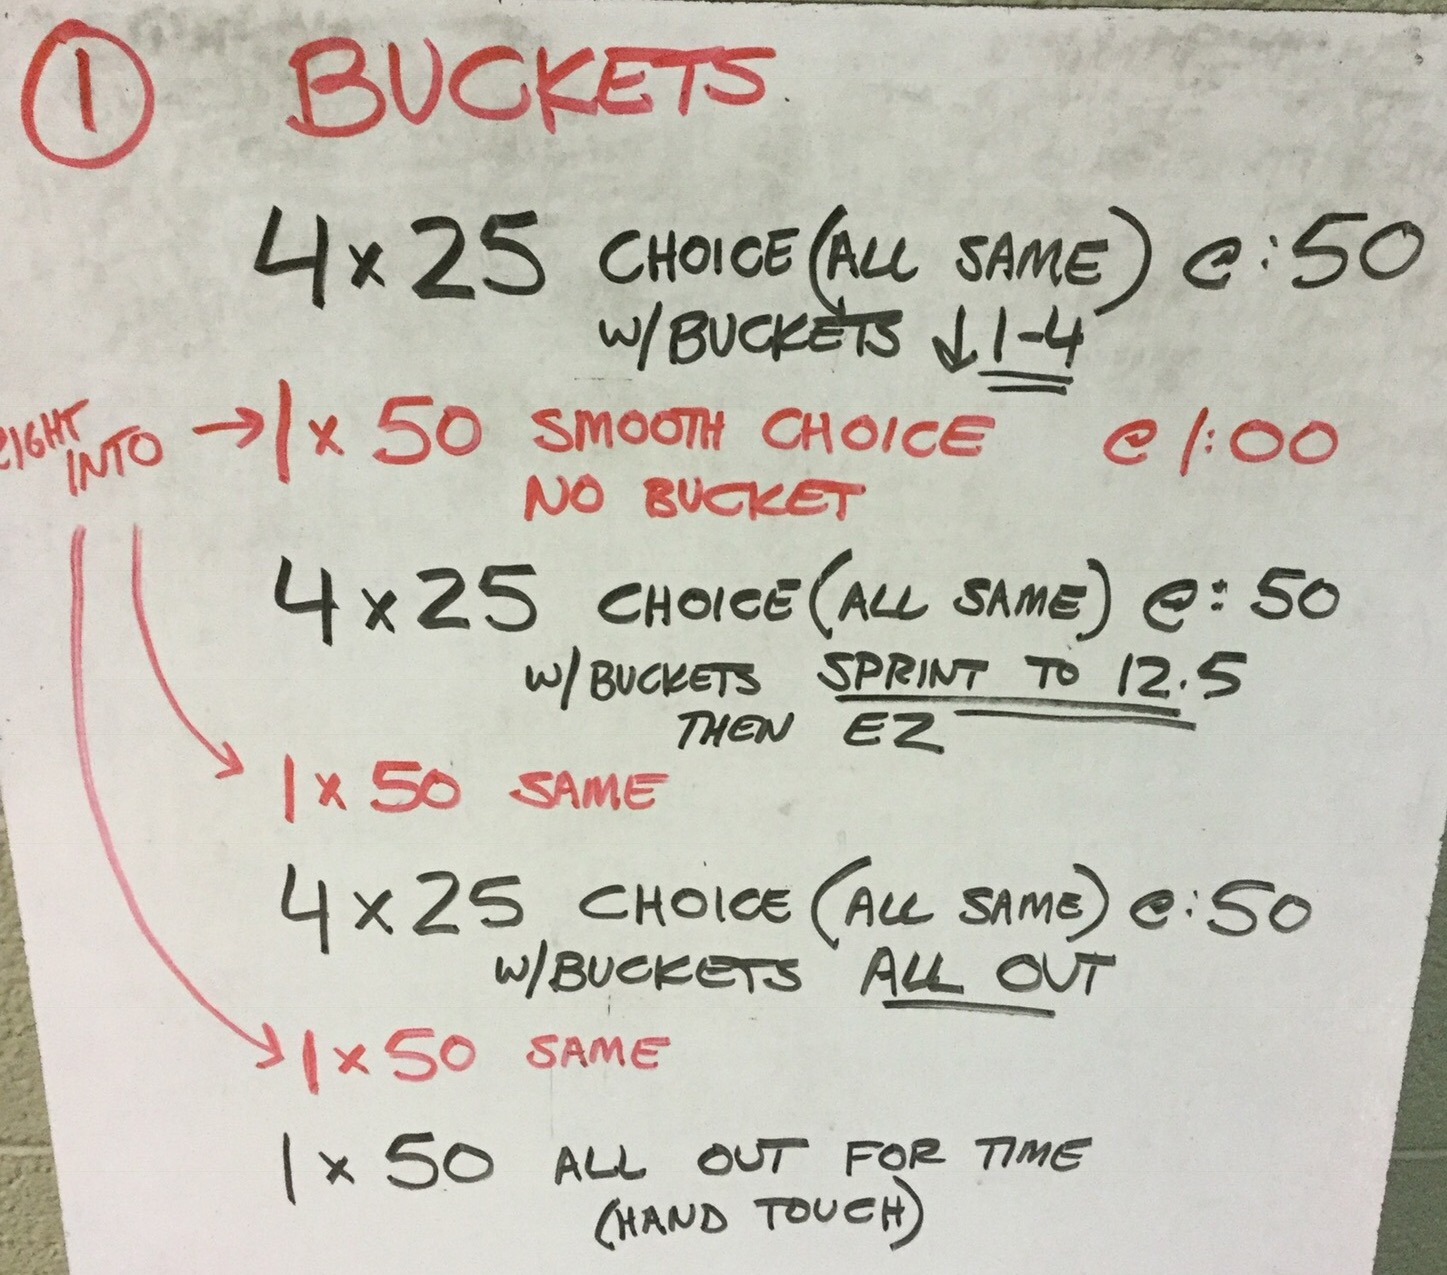 ① BUCKETS
4 x 25 CHOICE (ALL SAME) @ :50
W/BUCKETS ↓ 1-4
RIGHT INTO → 1 x 50 SMOOTH CHOICE @ 1:00
NO BUCKET
4 x 25 CHOICE (ALL SAME) @ :50
W/BUCKETS SPRINT TO 12.5
THEN EZ
1 x 50 SAME
4 x 25 CHOICE (ALL SAME) @ :50
W/BUCKETS ALL OUT
1 x 50 SAME
1 x 50 ALL OUT FOR TIME
(HAND TOUCH)